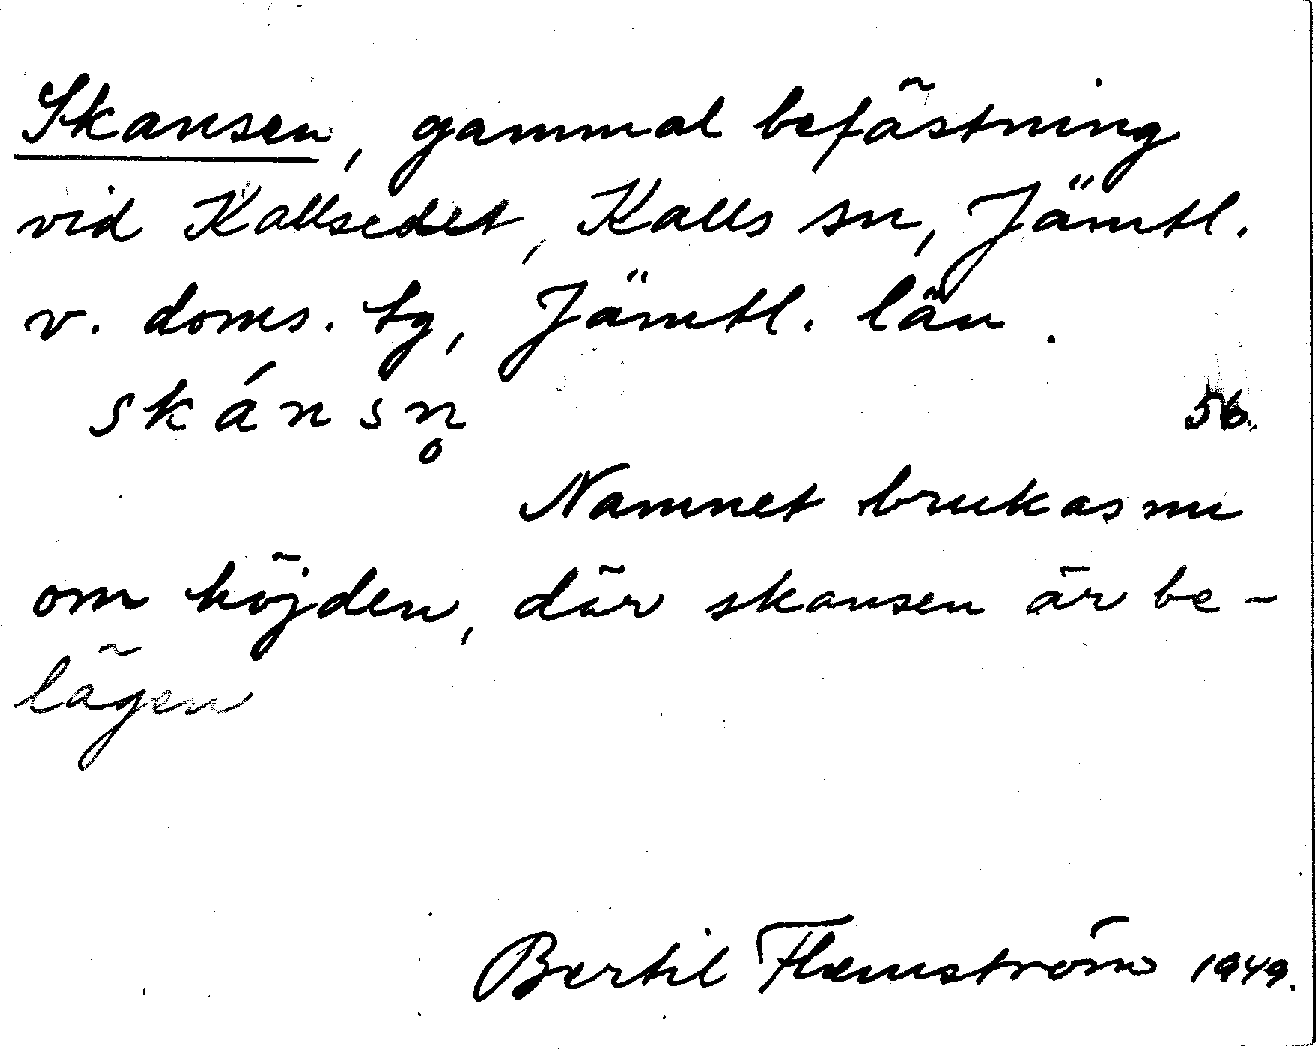 Skansen, gammal befästning
vid Kallsedet, Kalls sn, Jämtl.
v. doms. tg, Jämtl. län.
skánsn̥ 56.
Namnet brukas nu
om höjden, där skansen är be-
lägen
Bertil Flemström 1949.